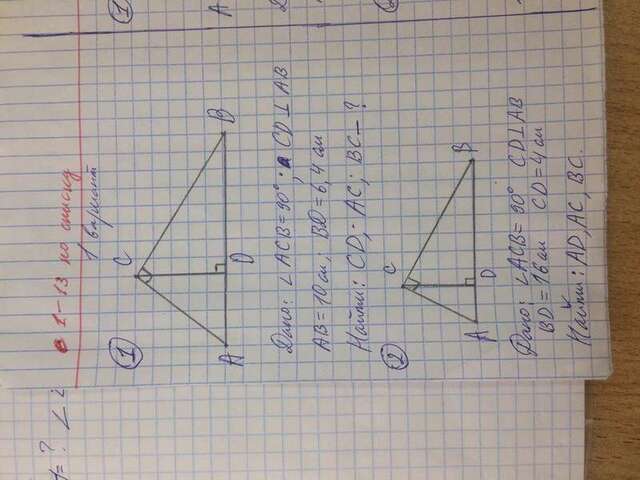 1-13 по списку
1 вариант
① C
A D B
Дано: ∠ACB=90°, CD⊥AB
AB=10см; BD=6,4см
Найти: CD; AC; BC-?
② C
A D B
Дано: ∠ACB=90° CD⊥AB
BD=16см CD=4см
Найти: AD, AC, BC.
①
A
=? ∠2